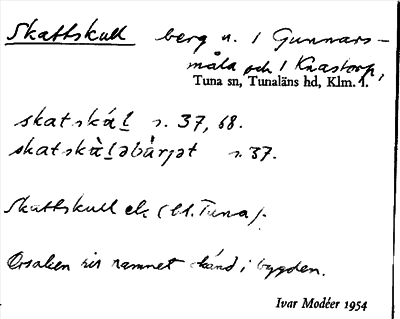 Skattskull berg n. i Gunnars-
måla och i Knastorp,
Tuna sn, Tunaläns hd, Klm. l.
skatskáḷ s. 37, 68.
skatskàḷəbàrjət s. 37.
Skattskull ek (bl. Tuna).
Orsaken till namnet okänd i bygden.
Ivar Modéer 1954